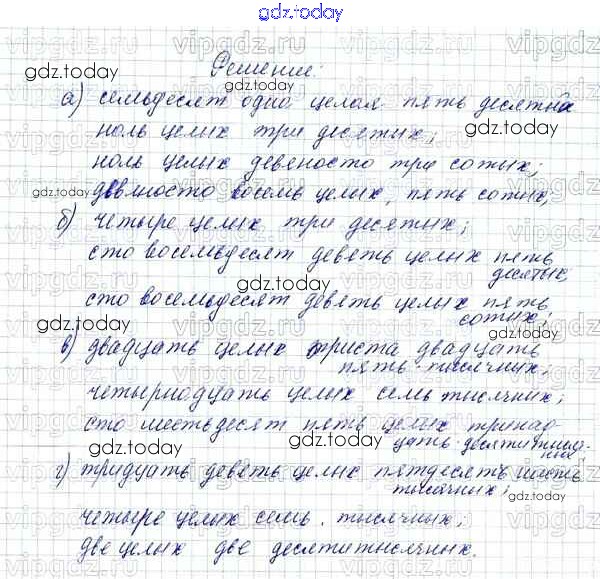 gdz.today
Решение:
а) семьдесят одна целая пять десятых
ноль целых три десятых;
ноль целых девяносто три сотых;
девяносто восемь целых, пять сотых,
б) четыре целых три десятых;
сто восемьдесят девять целых пять
десятых
сто восемьдесят девять целых пять
сотых;
в) двадцать целых триста двадцать
пять тысячных;
четырнадцать целых семь тысячных;
сто шестьдесят пять целых тринад
цать десятитысяч-
ных;
г) тридцать девять целых пятьдесят шесть
тысячных;
четыре целых семь тысячных;
две целых две десятитысячных.